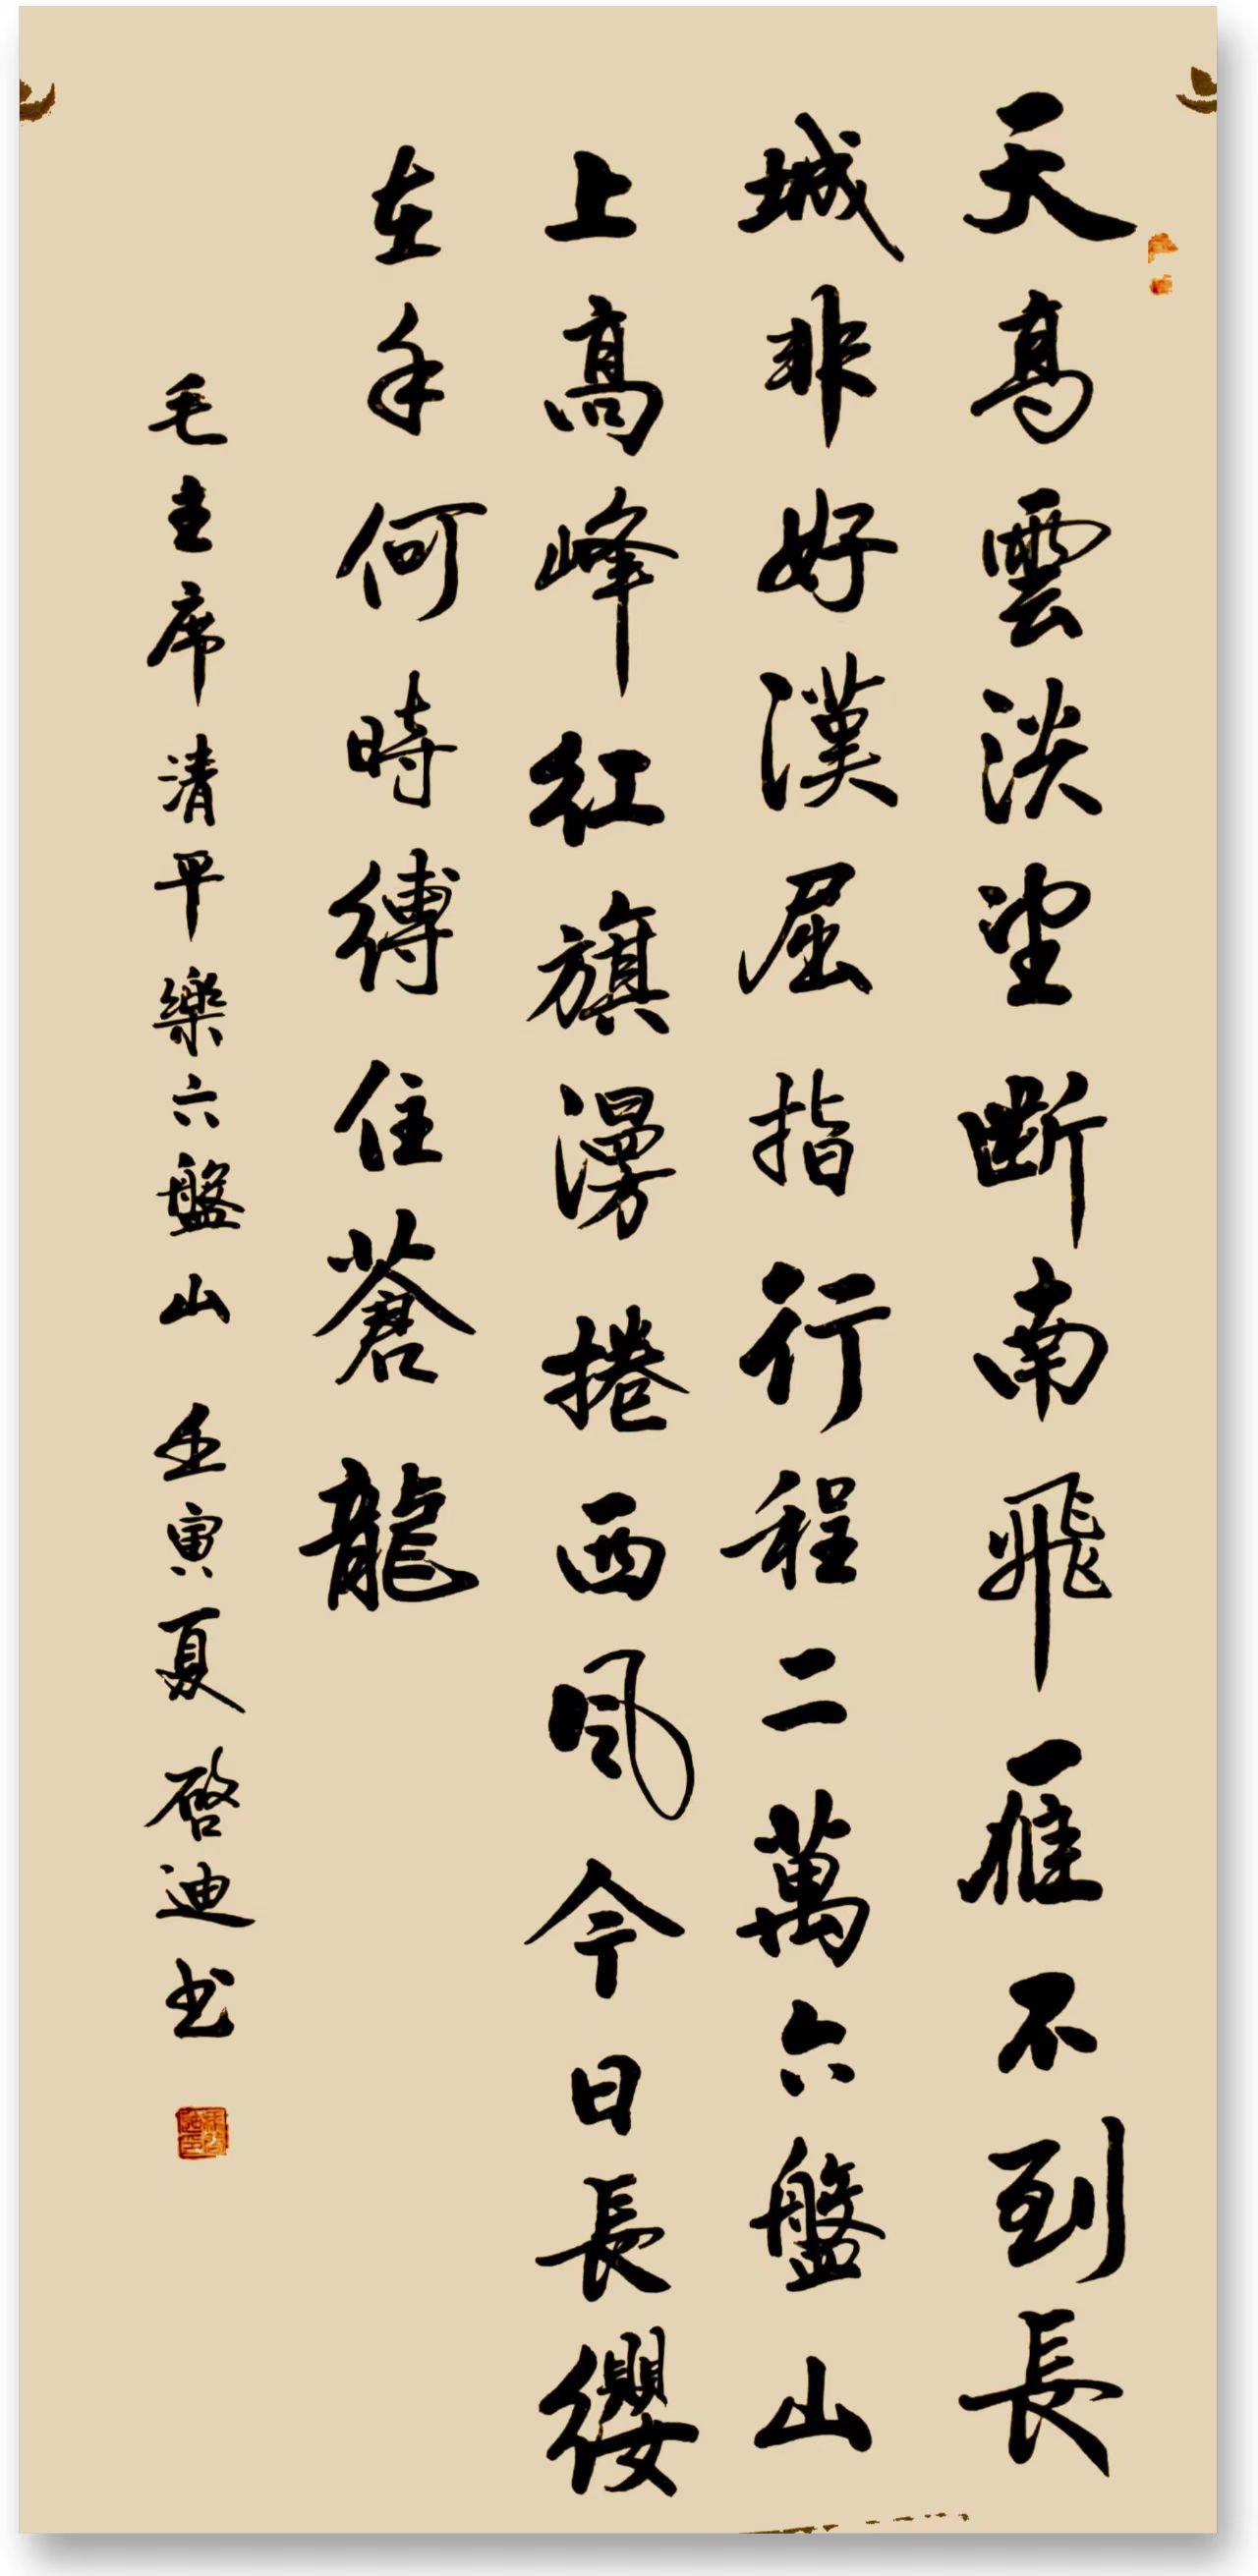 天高雲淡望斷南飛雁不到長
城非好漢屈指行程二萬六盤山
上高峰紅旗漫捲西風今日長纓
在手何時縛住蒼龍
毛主席清平樂六盤山 壬寅夏 啓迪书